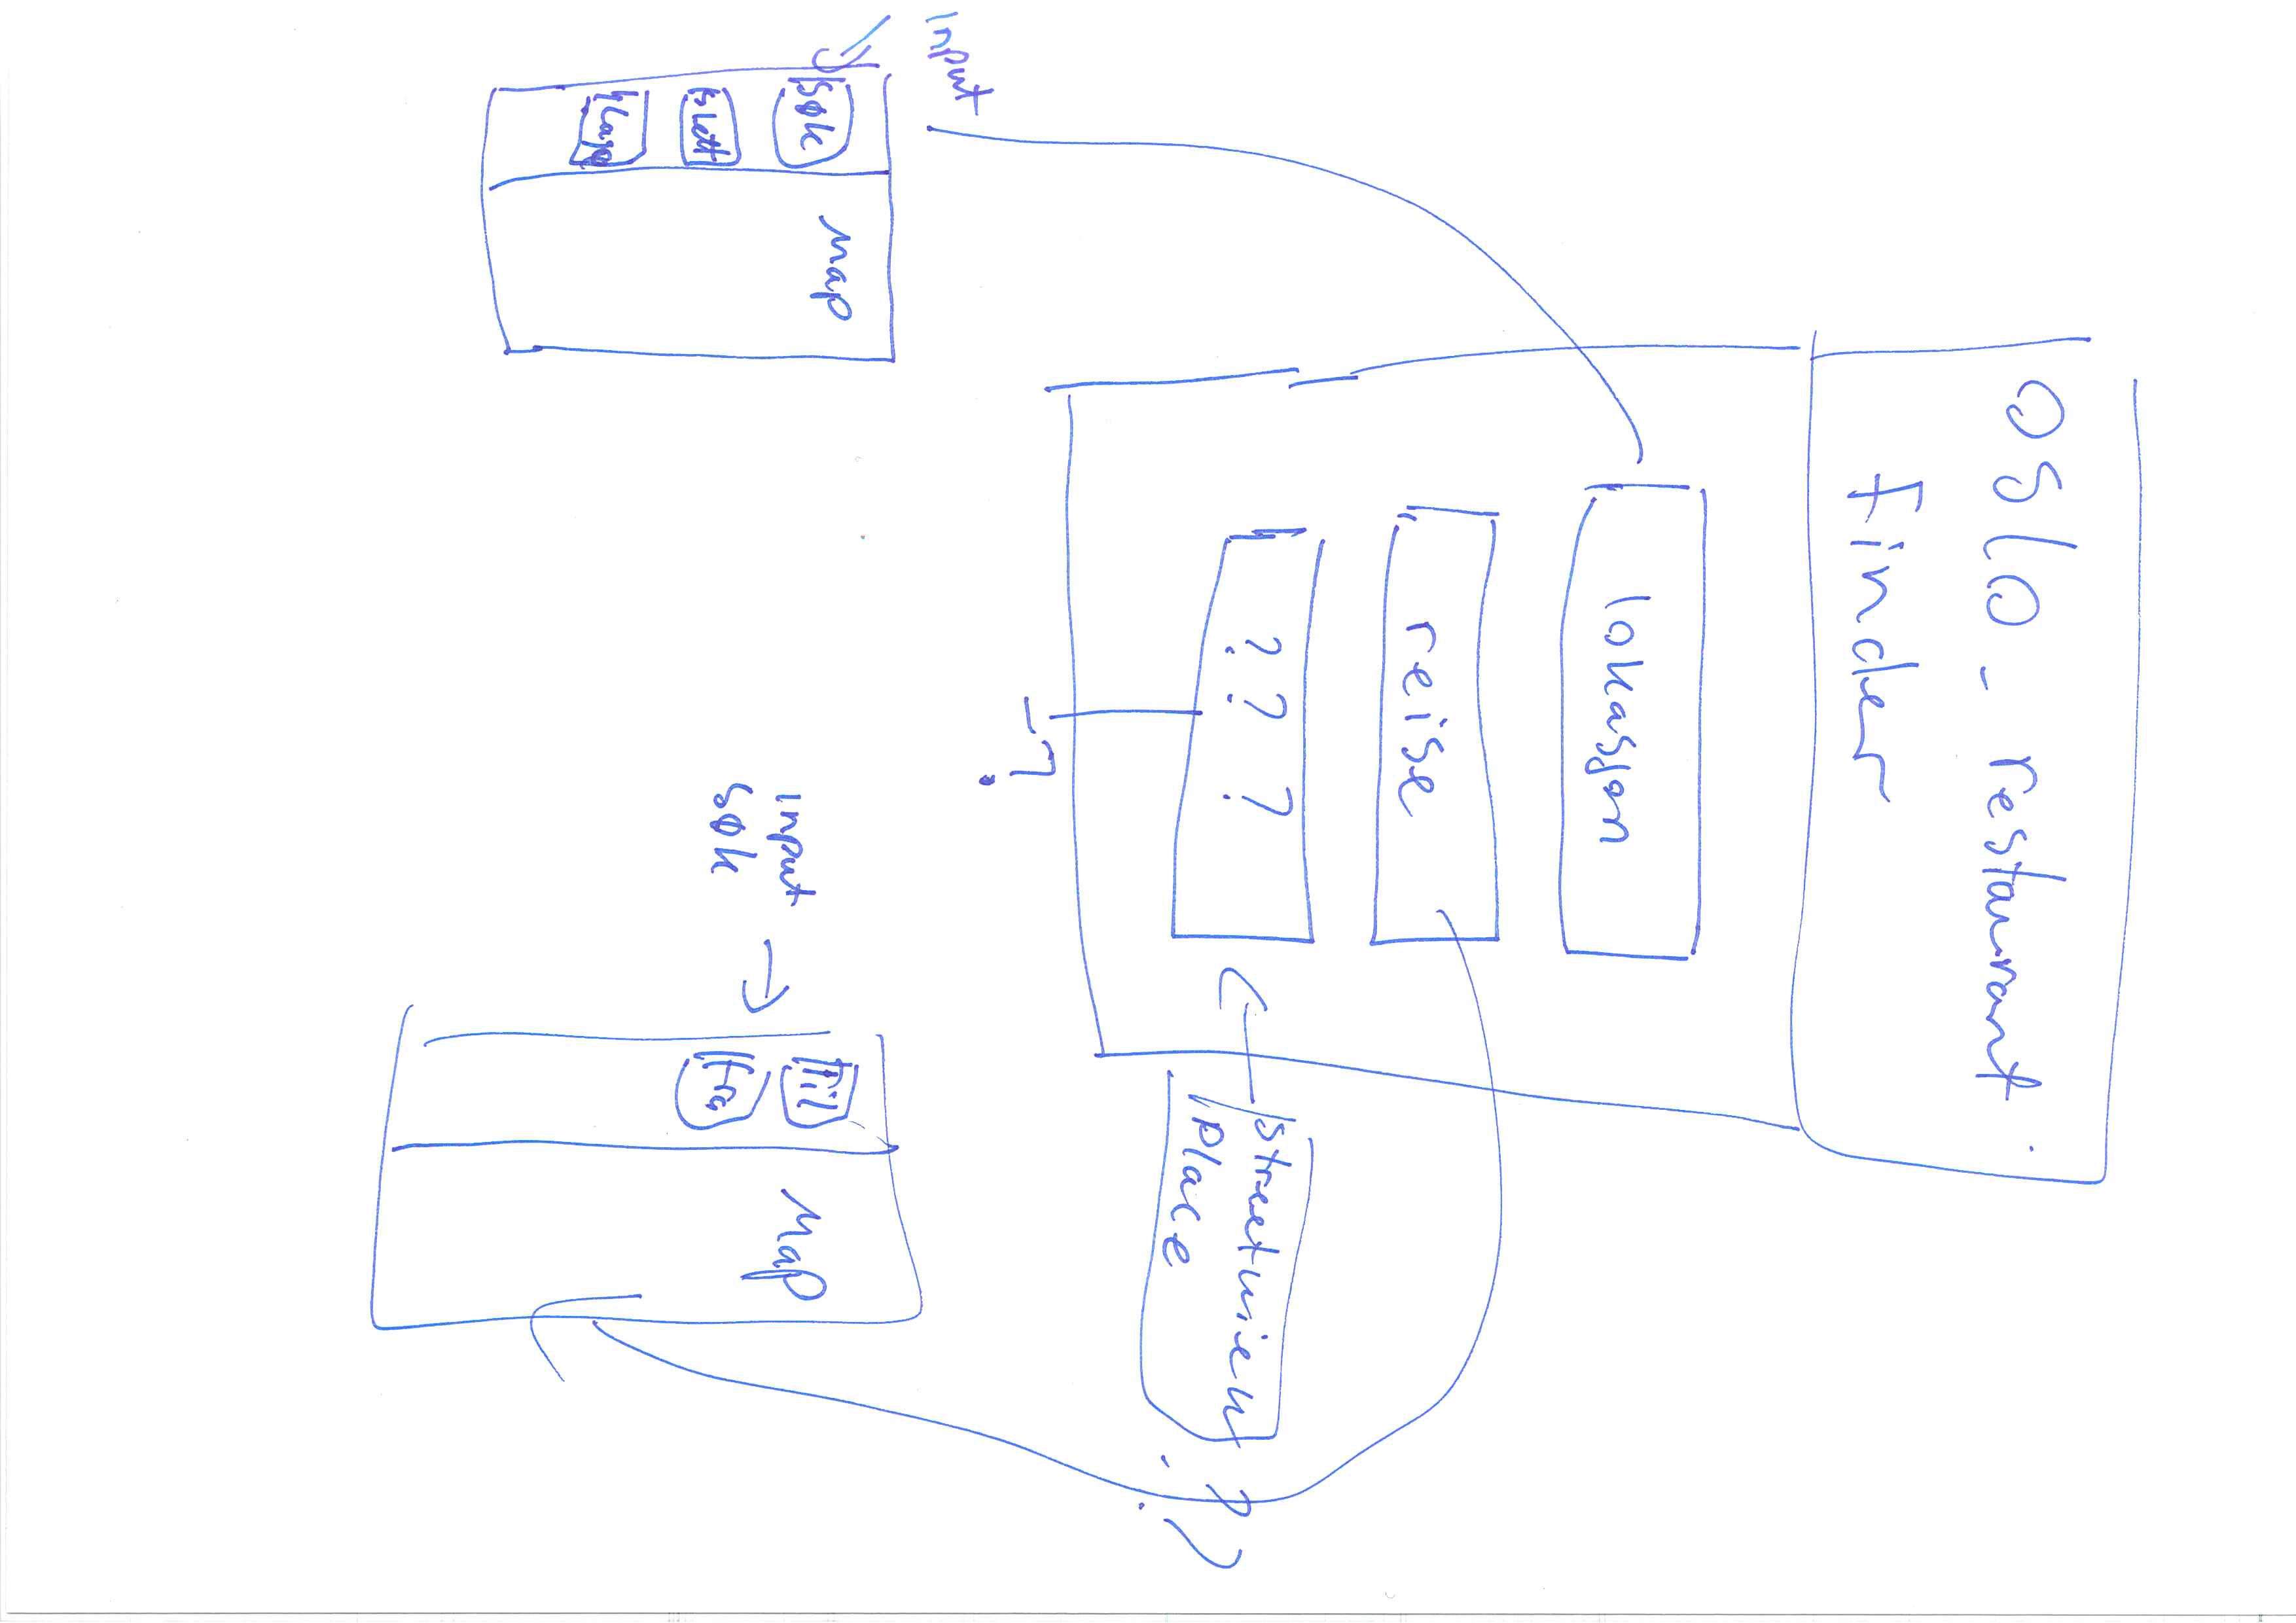 Oslo - restaurant
Finder
lokasjon
reise
? ? ?
?
streetview ??
place
input
søk
slett
lage
map
input
søk
Til
Fra
map